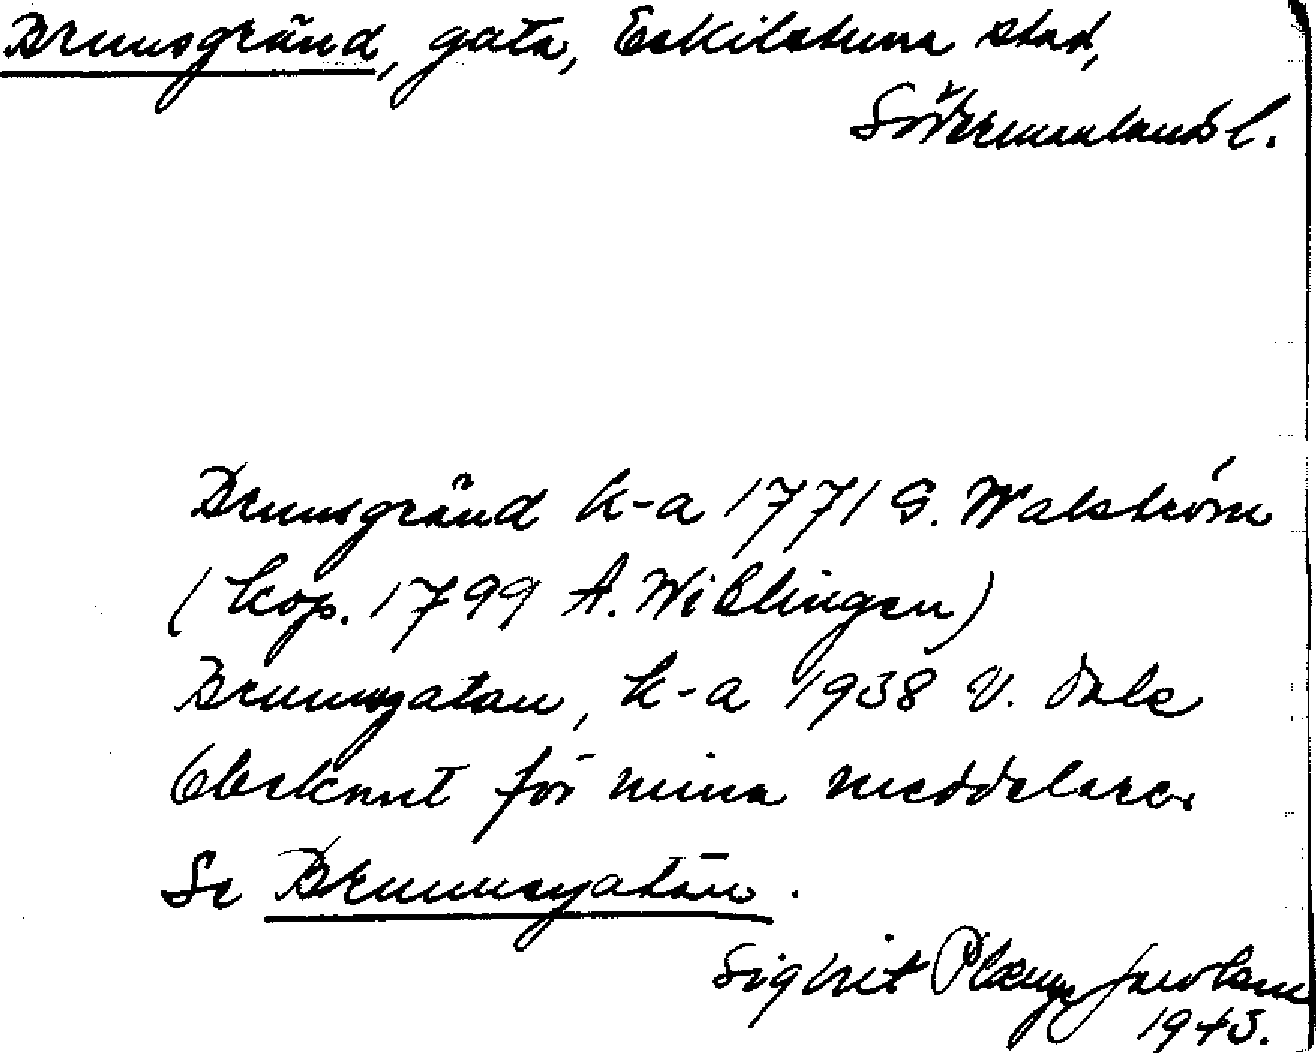 Brunsgränd, gata, Eskilstuna stad,
Södermanlands l.
Brunsgränd k-a 1771 G. Walström
(kop. 1799 A. Wiblingen)
Brunnsgatan, k-a 1938 V. Dale
Obekant för mina meddelare.
Se Brunnsgatan.
Sigbrit Plænge Jacobson
1943.